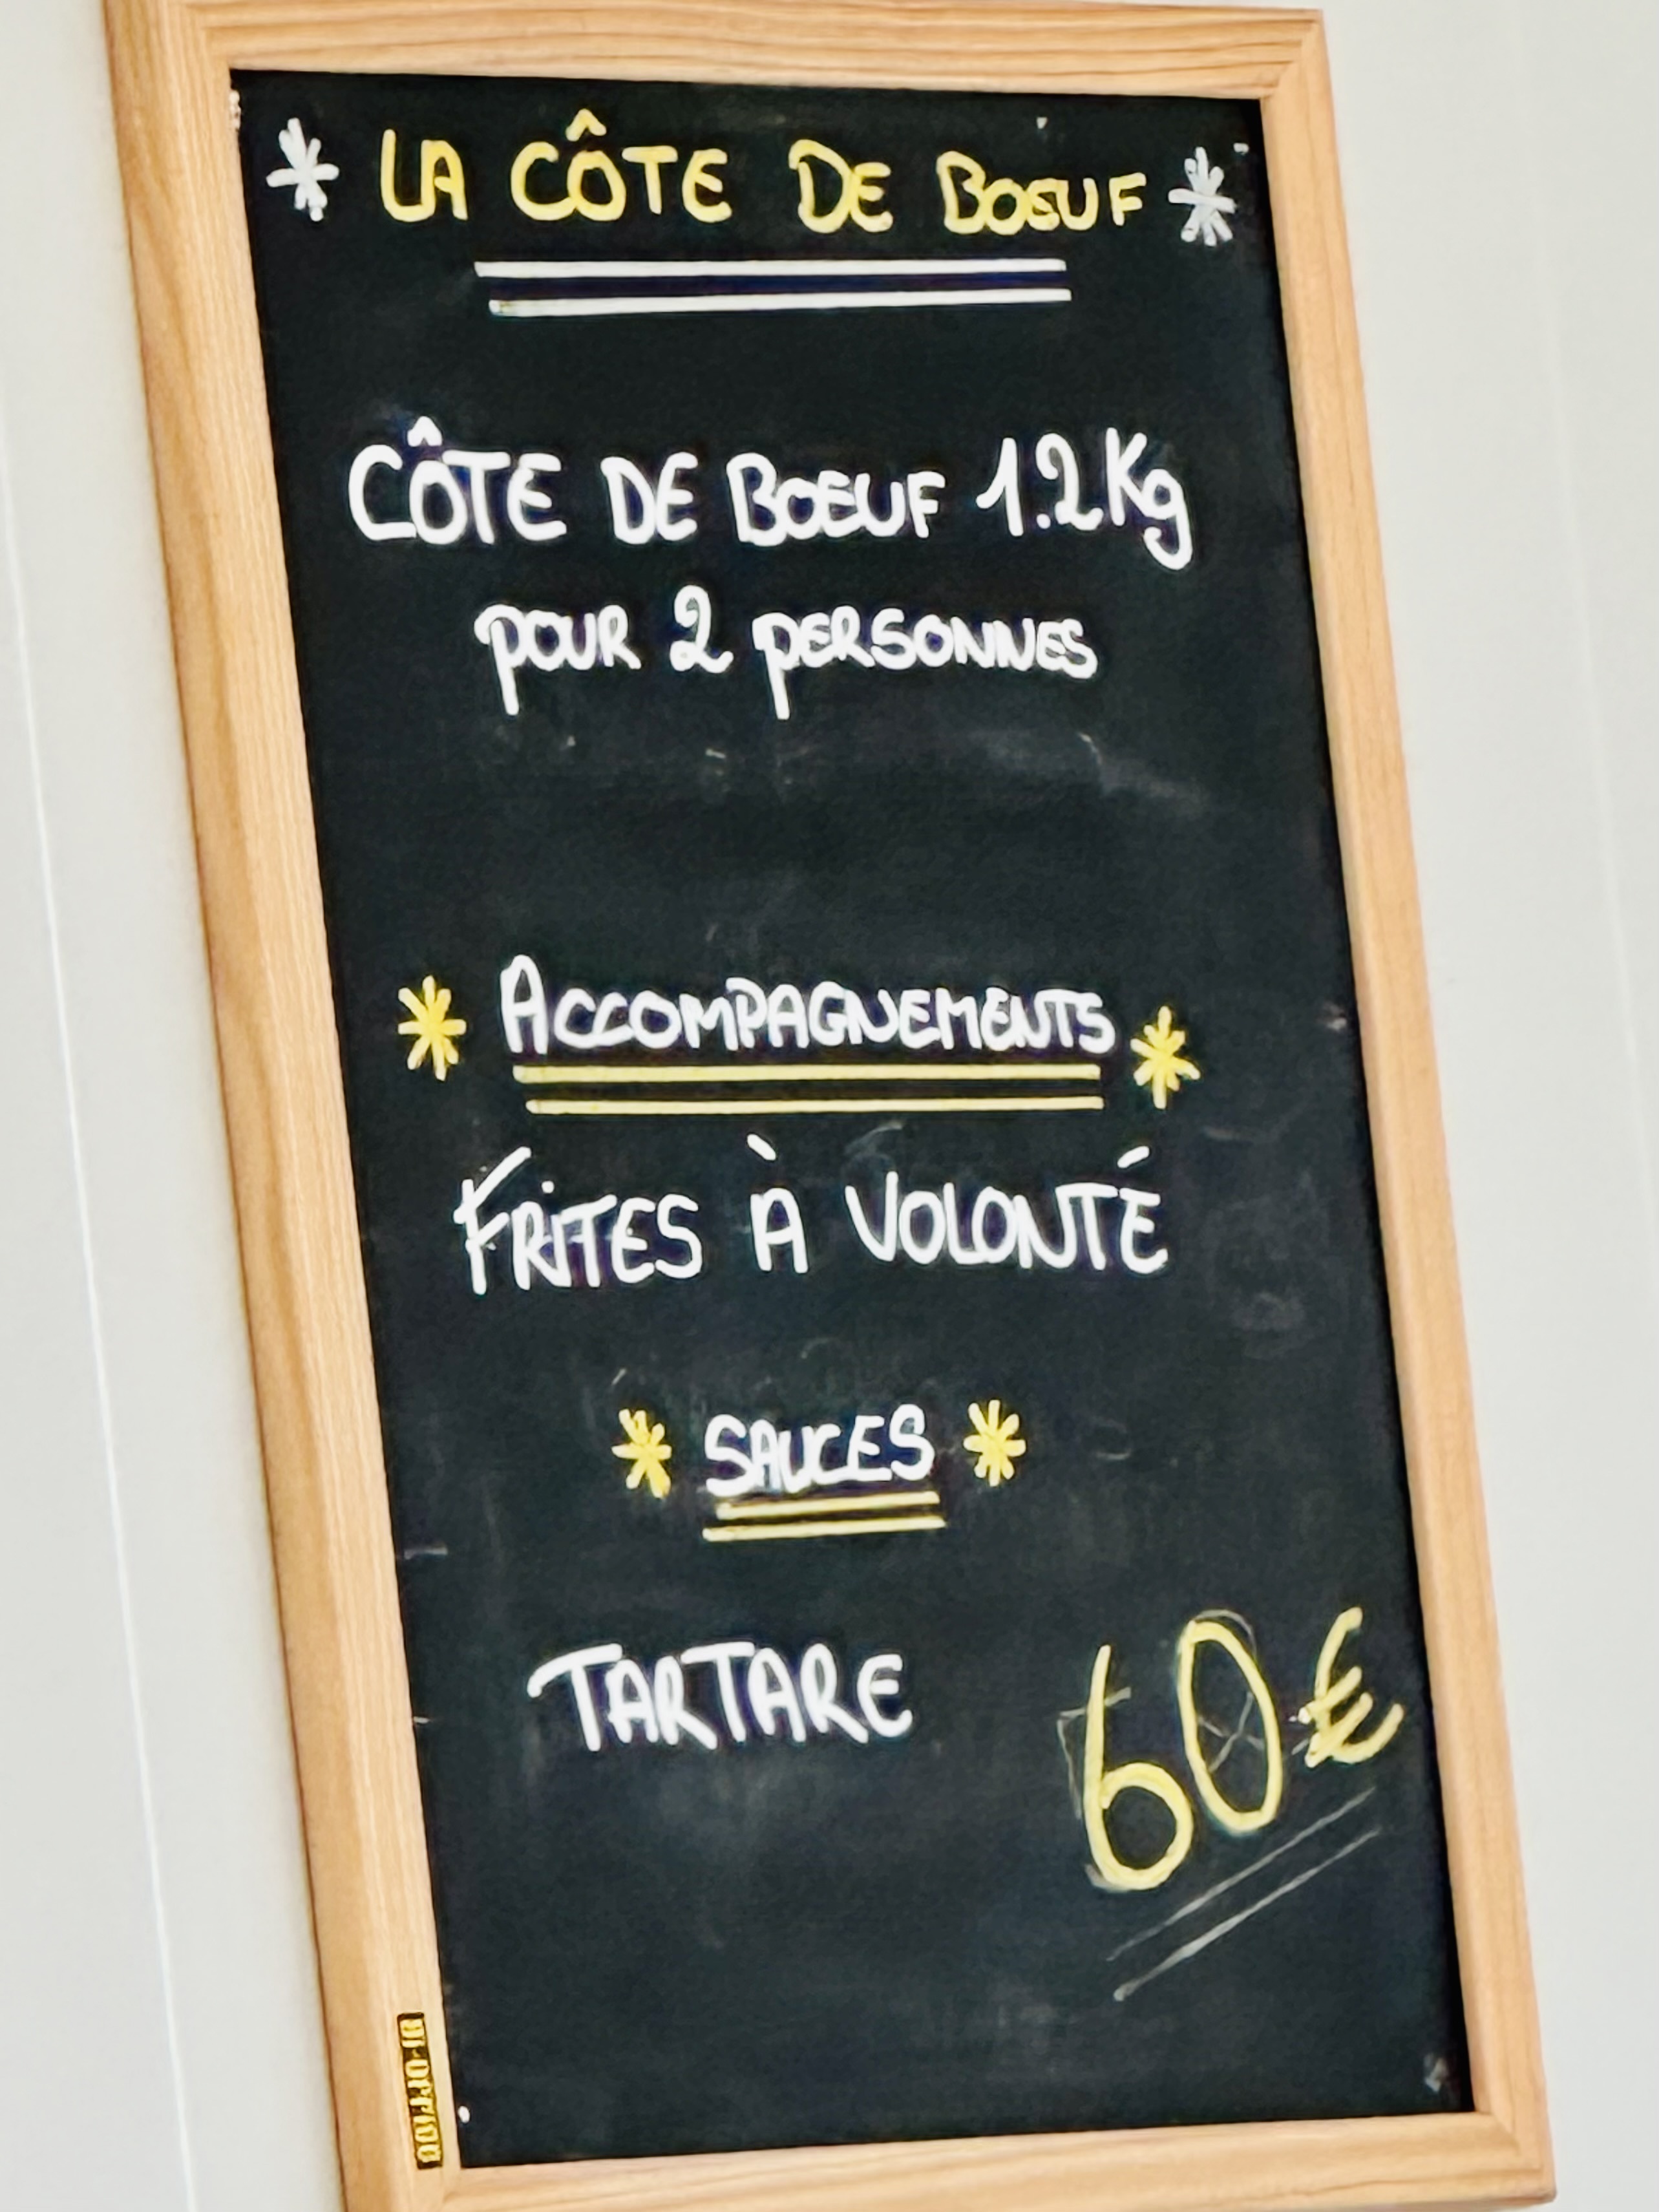 * LA CÔTE DE BOEUF *
CÔTE DE BOEUF 1.2Kg
POUR 2 PERSONNES
* ACCOMPAGNEMENTS *
FRITES À VOLONTÉ
* SAUCES *
TARTARE
60€
BI-OFFICE